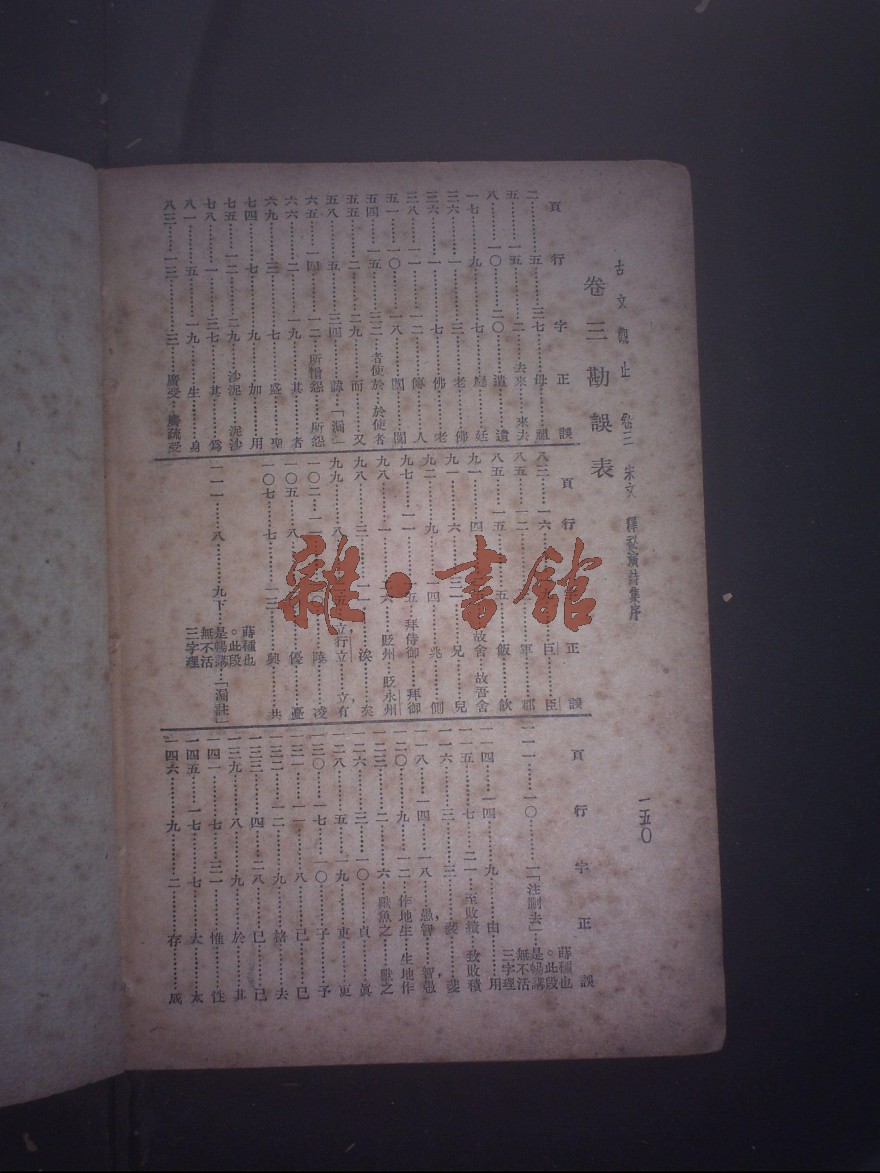 古文觀止 卷三 宋文 釋祕演詩集序 一五〇
卷三勘誤表
頁 行 字 正 誤
二……五……三七……母……祖
五……一五……二……去來……來去
八……一〇……二〇……遺……遺
一七……九……七……庭……廷
三六……一……三……老……佛
三六……一……七……佛……老
三八……一一……一二……傳……人
五一……一〇……一八……閣……閣
五四……一五……三三……者使於……於使者
五五……二……二九……而……又
五八……五……三四……諱……「漏」
六五……一四……一二……所憎怨……所怨
六六……二……一九……其……者
六九……三……七……盛……聖
七四……七……九……加……用
七五……一二……二九……沙泥……泥沙
七八……一……三七……其……為
八一……五……一九……生……身
八三……一三……三……廣受……廣疏受
頁 行 正 誤
八三……一六……巨……臣
八五……一二……軍……郡
八五……一五……五……飯……飲
九一……四……故舍……故吾舍
九一……六……三一……兄……兒
九二……九……一四……兆……側
九七……一一……五……拜侍御……拜御
九八……一……六……貶州……貶永州
九八……三……一一……涘……矣
九九……八……五……立,行立……立,有
一〇二……一一……陵……凌
一〇五……八……優……憂
一〇七……七……一三……興……共
一一一……八……九下……蒔種也。此段是暢講無不活三字理……「漏註」
頁 行 字 正 誤
一一一……一〇……一……「注刪去」……蒔種也。此段是暢講無不活三字理
一一四……一四……九……由……用
一一五……七……二一……至敗績……致敗積
一一六……三……三……裴……斐
一一八……一四……一八……愚,智……智,愚
一二〇……九……一二……作地生……生地作
一二三……二……六……獸魚之……獸之
一二六……三……一〇……貞……真
一二八……五……一九……吏……更
一三〇……一七……一〇……子……予
一三一……一一……八……已……巳
一三二……一二……九……格……去
一三三……四……二八……已……己
一三九……八……九……於……其
一四一……七……三一……惟……性
一四五……一七……七……大……太
一四六……九……二……存……成
雜·書館